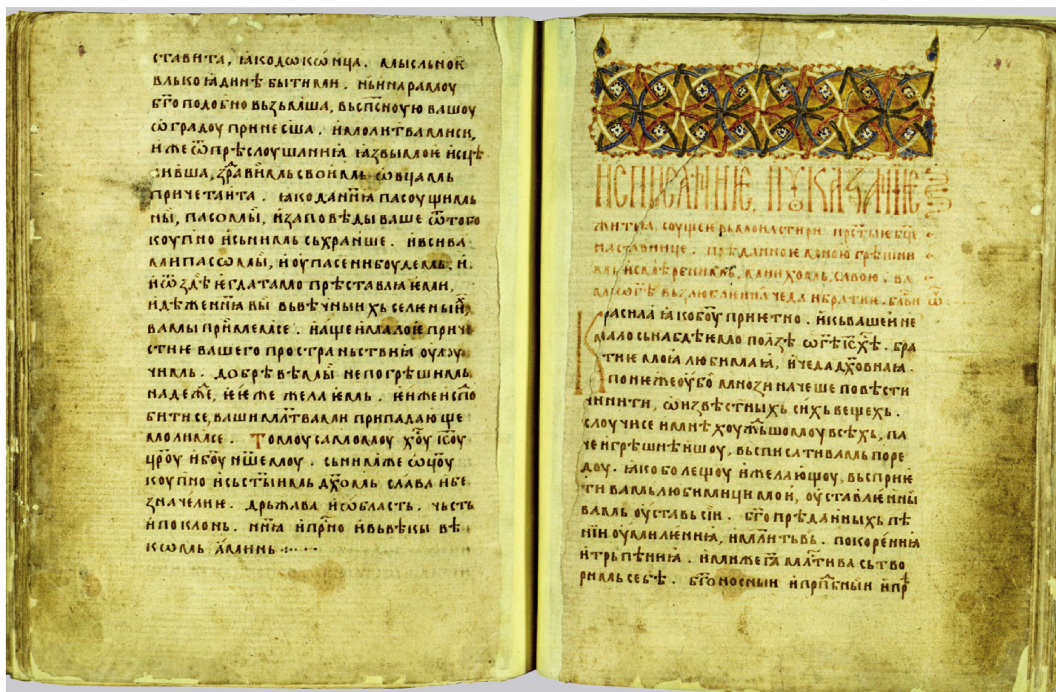 ставита, ꙗкодокѡнца. мысльнок
влькоꙗдинѣ бытими. ньинарамоу
бг҃оподобно вьзьмша, вьспсноую вашоу
ѡградоу принесша. имолитвамиси,
иже ѿпрѣслоушаниꙗ ꙗзвымои исцѣ
ливша, здравимь своимь ѡвцамь
причетаита. ꙗкоданнїꙗ пасоущимь
ны, пасомы, изаповѣды ваше ѿтого
коупно исьнимь сьхранше. ивсива
мипассомы, иоупасенибоудемь, и
иѿздѣ егдатамо прѣставлꙗеми,
идѣженнꙗ вы вьвѣчныихь селенныи
вамы приимемсе. наше ималоѥ приче
стиѥ вашего пространьствиꙗ оулоу
чимь. добрѣвѣмы непогрѣшимь
надеже, ѥиже желаѥмь. иѥиженспо
битисе, вашимлт҃вами припадающе
молимсе. Томоусамомоу хоу ісоу
цроу ибоу ншемоу. сьнимже ѡцоу
коупно исьст҃ыимь дх҃омь слава ибе
значелиѥ. дрьжава иѡбласть. чьсть
ипоклонь. ннꙗ ипрⷭно ивьвѣкы вѣ
комь аминь
исписание, иꙋказание
житїа соущиѥ вьмонастири прѣстыѥ бц҃е
наставнице. прѣданноѥ мною грѣшни
мь исмѣреннимь, монихомь савою. ва
мь ѡг҃ѣ вьзлюбленнаꙗ чеда ибратиѥ. блг҃ви ѡ
Красила ꙗкобоу приѥтно. икьвашеи не
мало сьнабдѣѥмо ползѣ ѡг҃ѣ іс҃ хѣ. бра
тиѥ моꙗ любимаꙗ, ичеда дх҃овнаꙗ.
понѥжеоубо мнози начеше повѣсти
чинити, ѡизвѣстныхь сихь вещехь.
слоучисе имнѣ хоуждьшомоу всѣхь, па
че игрѣшнѣишоу, вьсписативамь поре
доу. ꙗко болещоу ижелающоу, вьсприѥ
ти вамь любимици мои, оуставлѥнны
вамь оуставь сїи. бг҃опрѣданныхь пѣ
нїи оумилѥниꙗ, имлитьвь. покорѥниꙗ
итрьпѣниꙗ. имижегаꙗ млт҃ива сьтво
римь себѣ. бг҃оносныи ипрпⷣбныи ипрⷣѣ